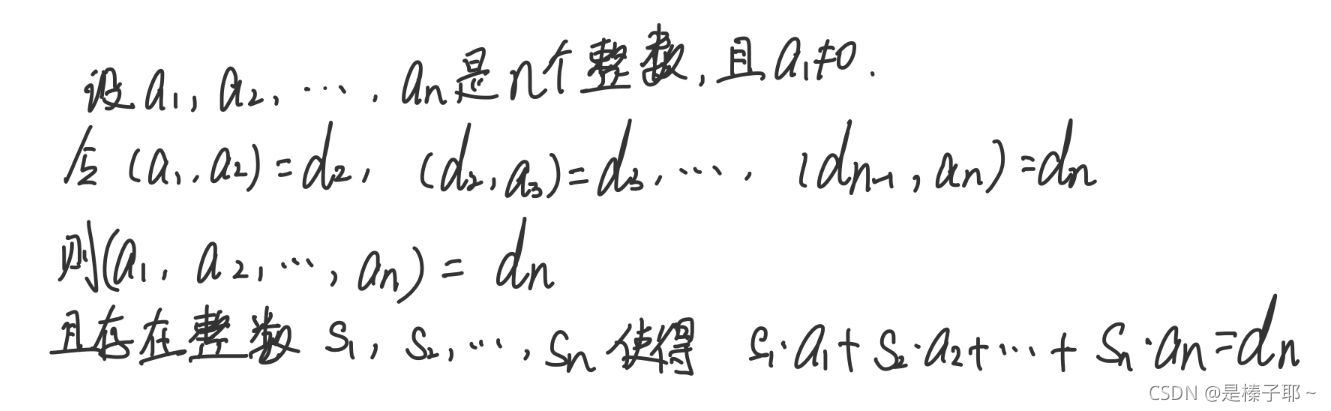 设 a₁, a₂, ⋯, aₙ是n个整数,且a₁≠0.
令 (a₁,a₂)=d₂, (d₂,a₃)=d₃,⋯, (dₙ₋₁,aₙ)=dₙ
则(a₁, a₂,⋯, aₙ) = dₙ
且存在整数 S₁, S₂,⋯, Sₙ 使得 S₁·a₁+S₂·a₂+⋯+Sₙ·aₙ=dₙ
CSDN @是榛子耶~